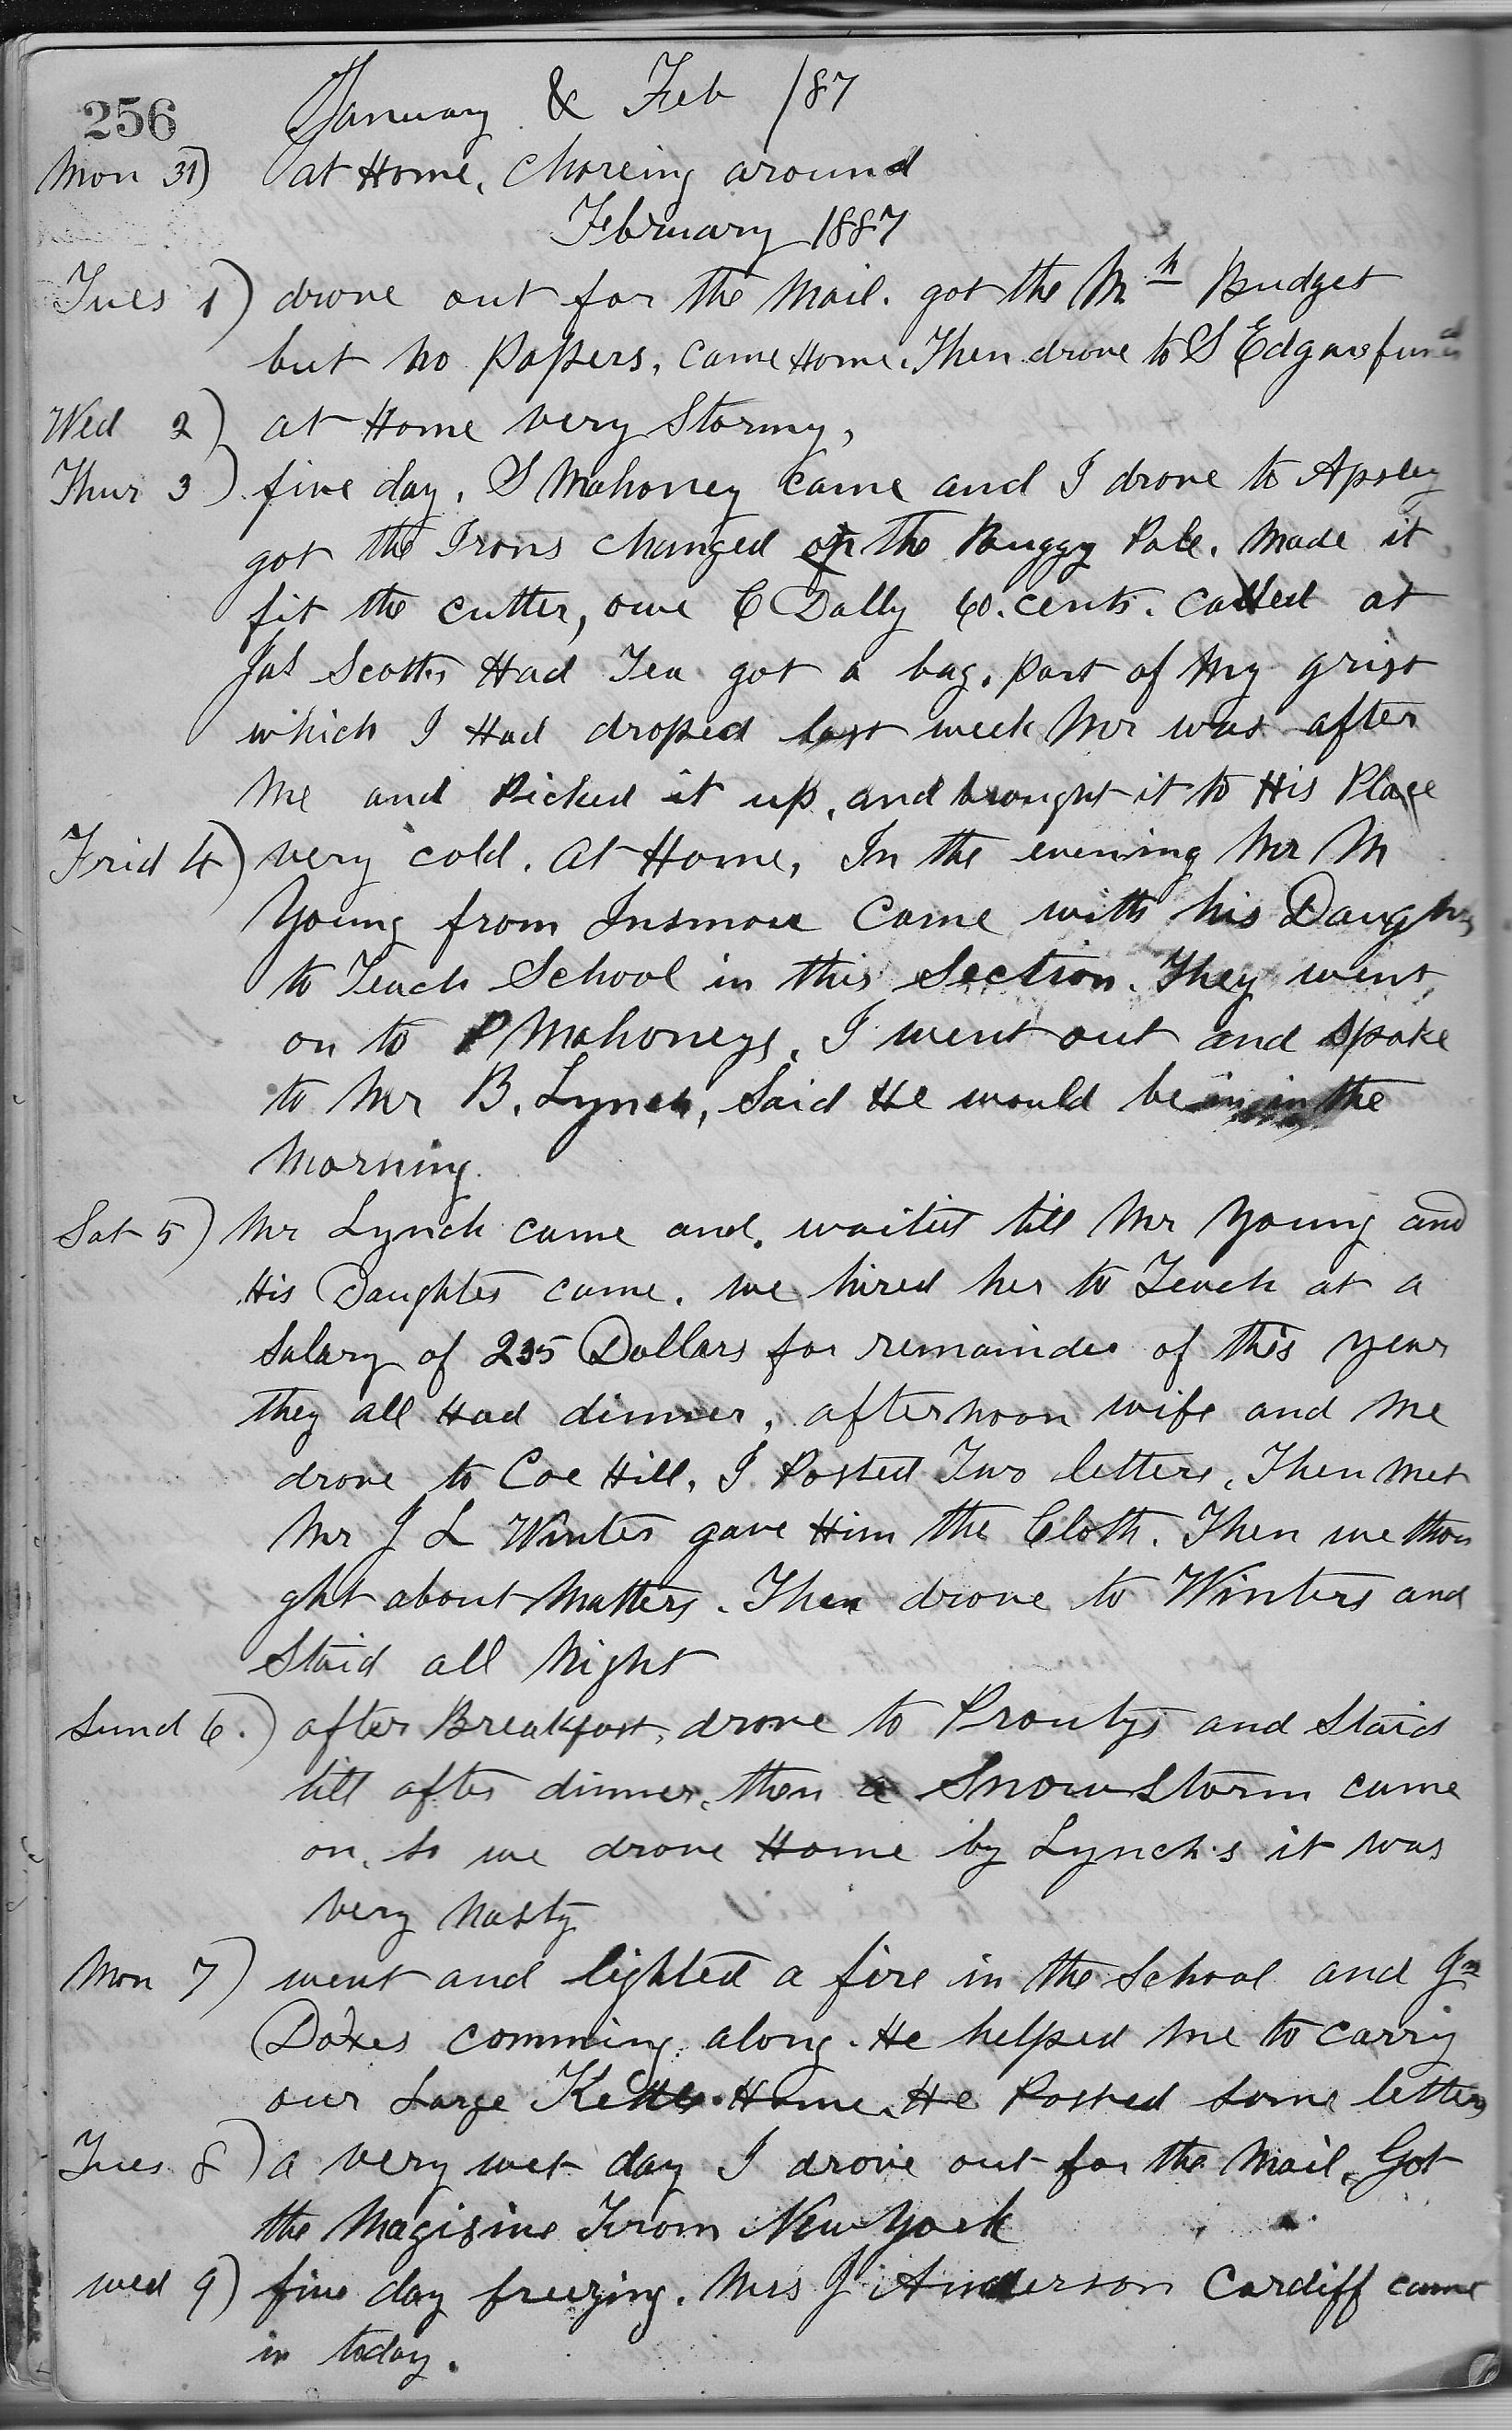 256 January & Feb /87
Mon 31) at Home, Choreing around
February 1887
Tues 1) drove out for the Mail. got the Mh Budget
but no Papers, Came Home. Then drove to S Edgars
Wed 2) at Home very Stormy,
Thur 3) fine day. S Mahoney Came and I drove to Apsley
got the Irons changed of the Buggy Pole. Made it
fit the cutter, owe C Dally 60. cents. called at
Jas Scotts Had Tea got a bag, Part of My grist
which I Had droped last week Mr was after
Me and Picked it up, and brought it to His Place
Frid 4) very cold. At Home, In the evening Mr M
Young from Came with his
to Teach School in this Section. They went
on to P Mahoneys, I went out and Spoke
to Mr B. Lynch, Said He would be in in the
Morning.
Sat 5) Mr Lynch came and. waited till Mr Young and
His Daughter came. we hired her to Teach at a
Salary of 235 Dollars for remainder of this year
they all Had dinner, afternoon wife and Me
drove to Coe Hill, I Posted Two letters, Then Met
Mr J L Winter gave Him the Cloth. Then we thou
ght about Matters. Then drove to Winters and
Staid all Night
Sund 6.) after Breakfast, drove to Proutys and Staid
till after dinner, then a Snow Storm came
on, So we drove Home by Lynch's it was
very Nasty
Mon 7) went and lighted a fire in the School and Jn
comming along. He helped Me to Carry
our Large Kettle Home. He Posted Some letters
Tues 8) a very wet day I drove out for the Mail, Got
the Magizine From New York
wed 9) fine day freezing. Mrs J Anderson Cardiff came
in today.